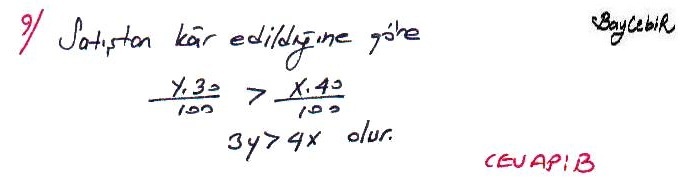 9/ Satıştan kâr edildiğine göre
BayCebiR
Y.30/100 > X.40/100
3y>4x olur.
CEVAP:B